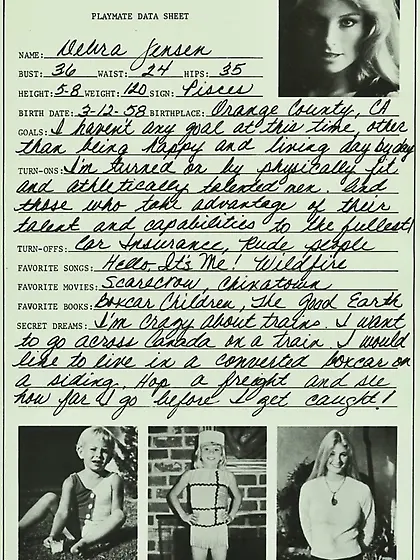 PLAYMATE DATA SHEET
NAME: Debra Jensen
BUST: 36 WAIST: 24 HIPS: 35
HEIGHT: 5-8 WEIGHT: 120 SIGN: Pisces
BIRTH DATE: 3-12-58 BIRTHPLACE: Orange County, CA
GOALS: I havent any goal at this time, other
than being happy and living day by day
TURN-ONS: I'm turned on by physically fit
and athletically talented men. And
those who take advantage of their
talent and capabilities to the fullest!
TURN-OFFS: Car Insurance, Rude people
FAVORITE SONGS: Hello, It's Me! Wildfire
FAVORITE MOVIES: Scarecrow, Chinatown
FAVORITE BOOKS: Boxcar Children, The Good Earth
SECRET DREAMS: I'm crazy about trains. I want
to go across Canada on a train. I would
like to live in a converted boxcar on
a siding. Hop a freight and see
how far I go before I get caught!